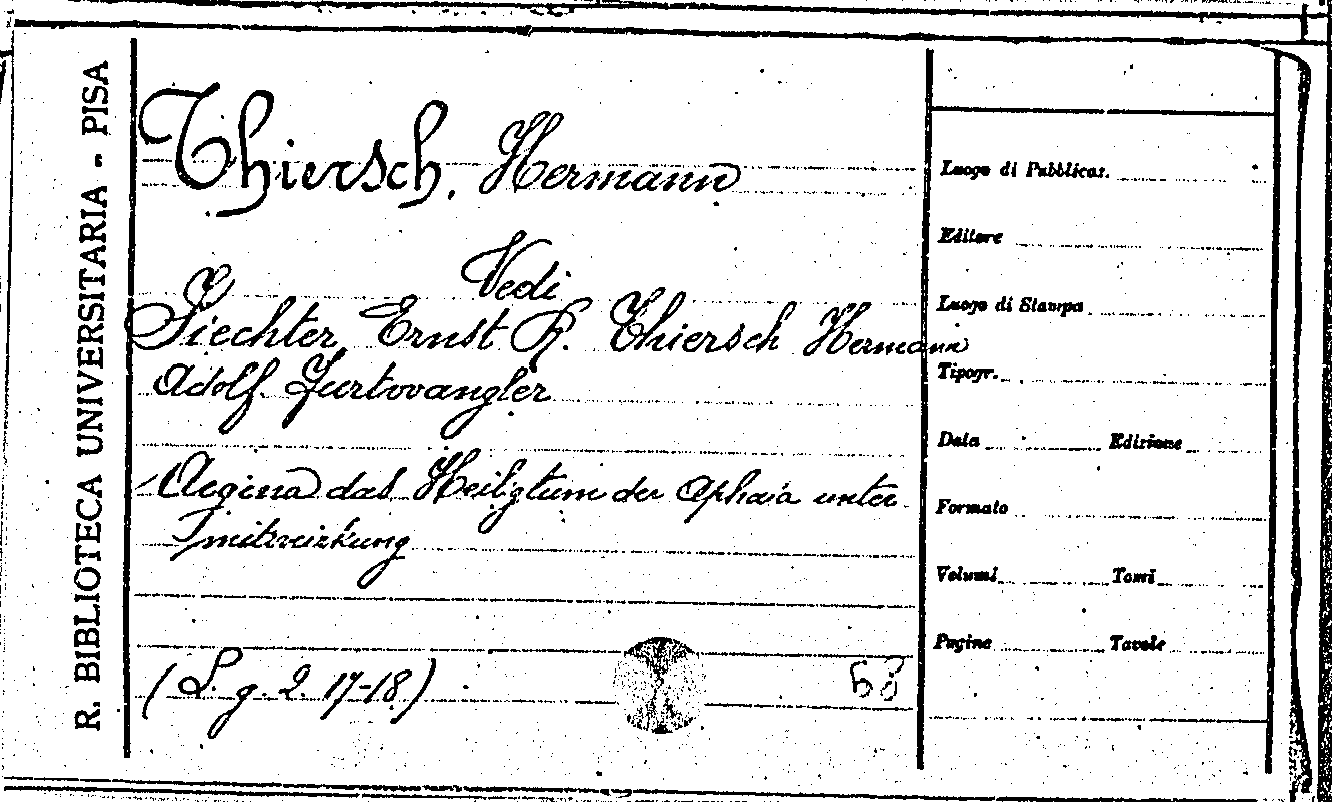 R. BIBLIOTECA UNIVERSITARIA - PISA
Thiersch, Hermann
Vedi
Fiechter, Ernst R. Thiersch Hermann
Adolf. Furtovangler
Aegina das Heiligtum der Aphaia unter
mitwirkung
(L. g. 2. 17-18)
63
Luogo di Pubblicaz.
Editore
Luogo di Stampa
Tipogr.
Data Edizione
Formato
Volumi Tomi
Pagine Tavole